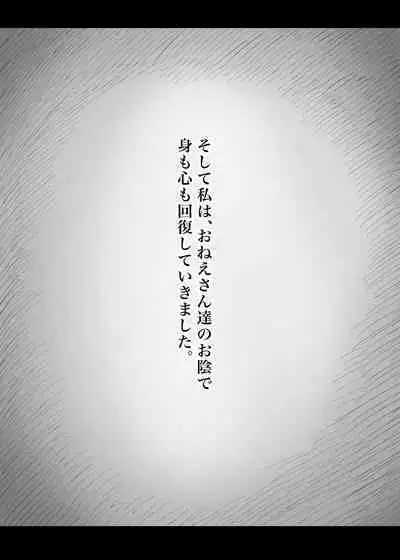 そして私は、おねえさん達のお陰で
身も心も回復していきました。